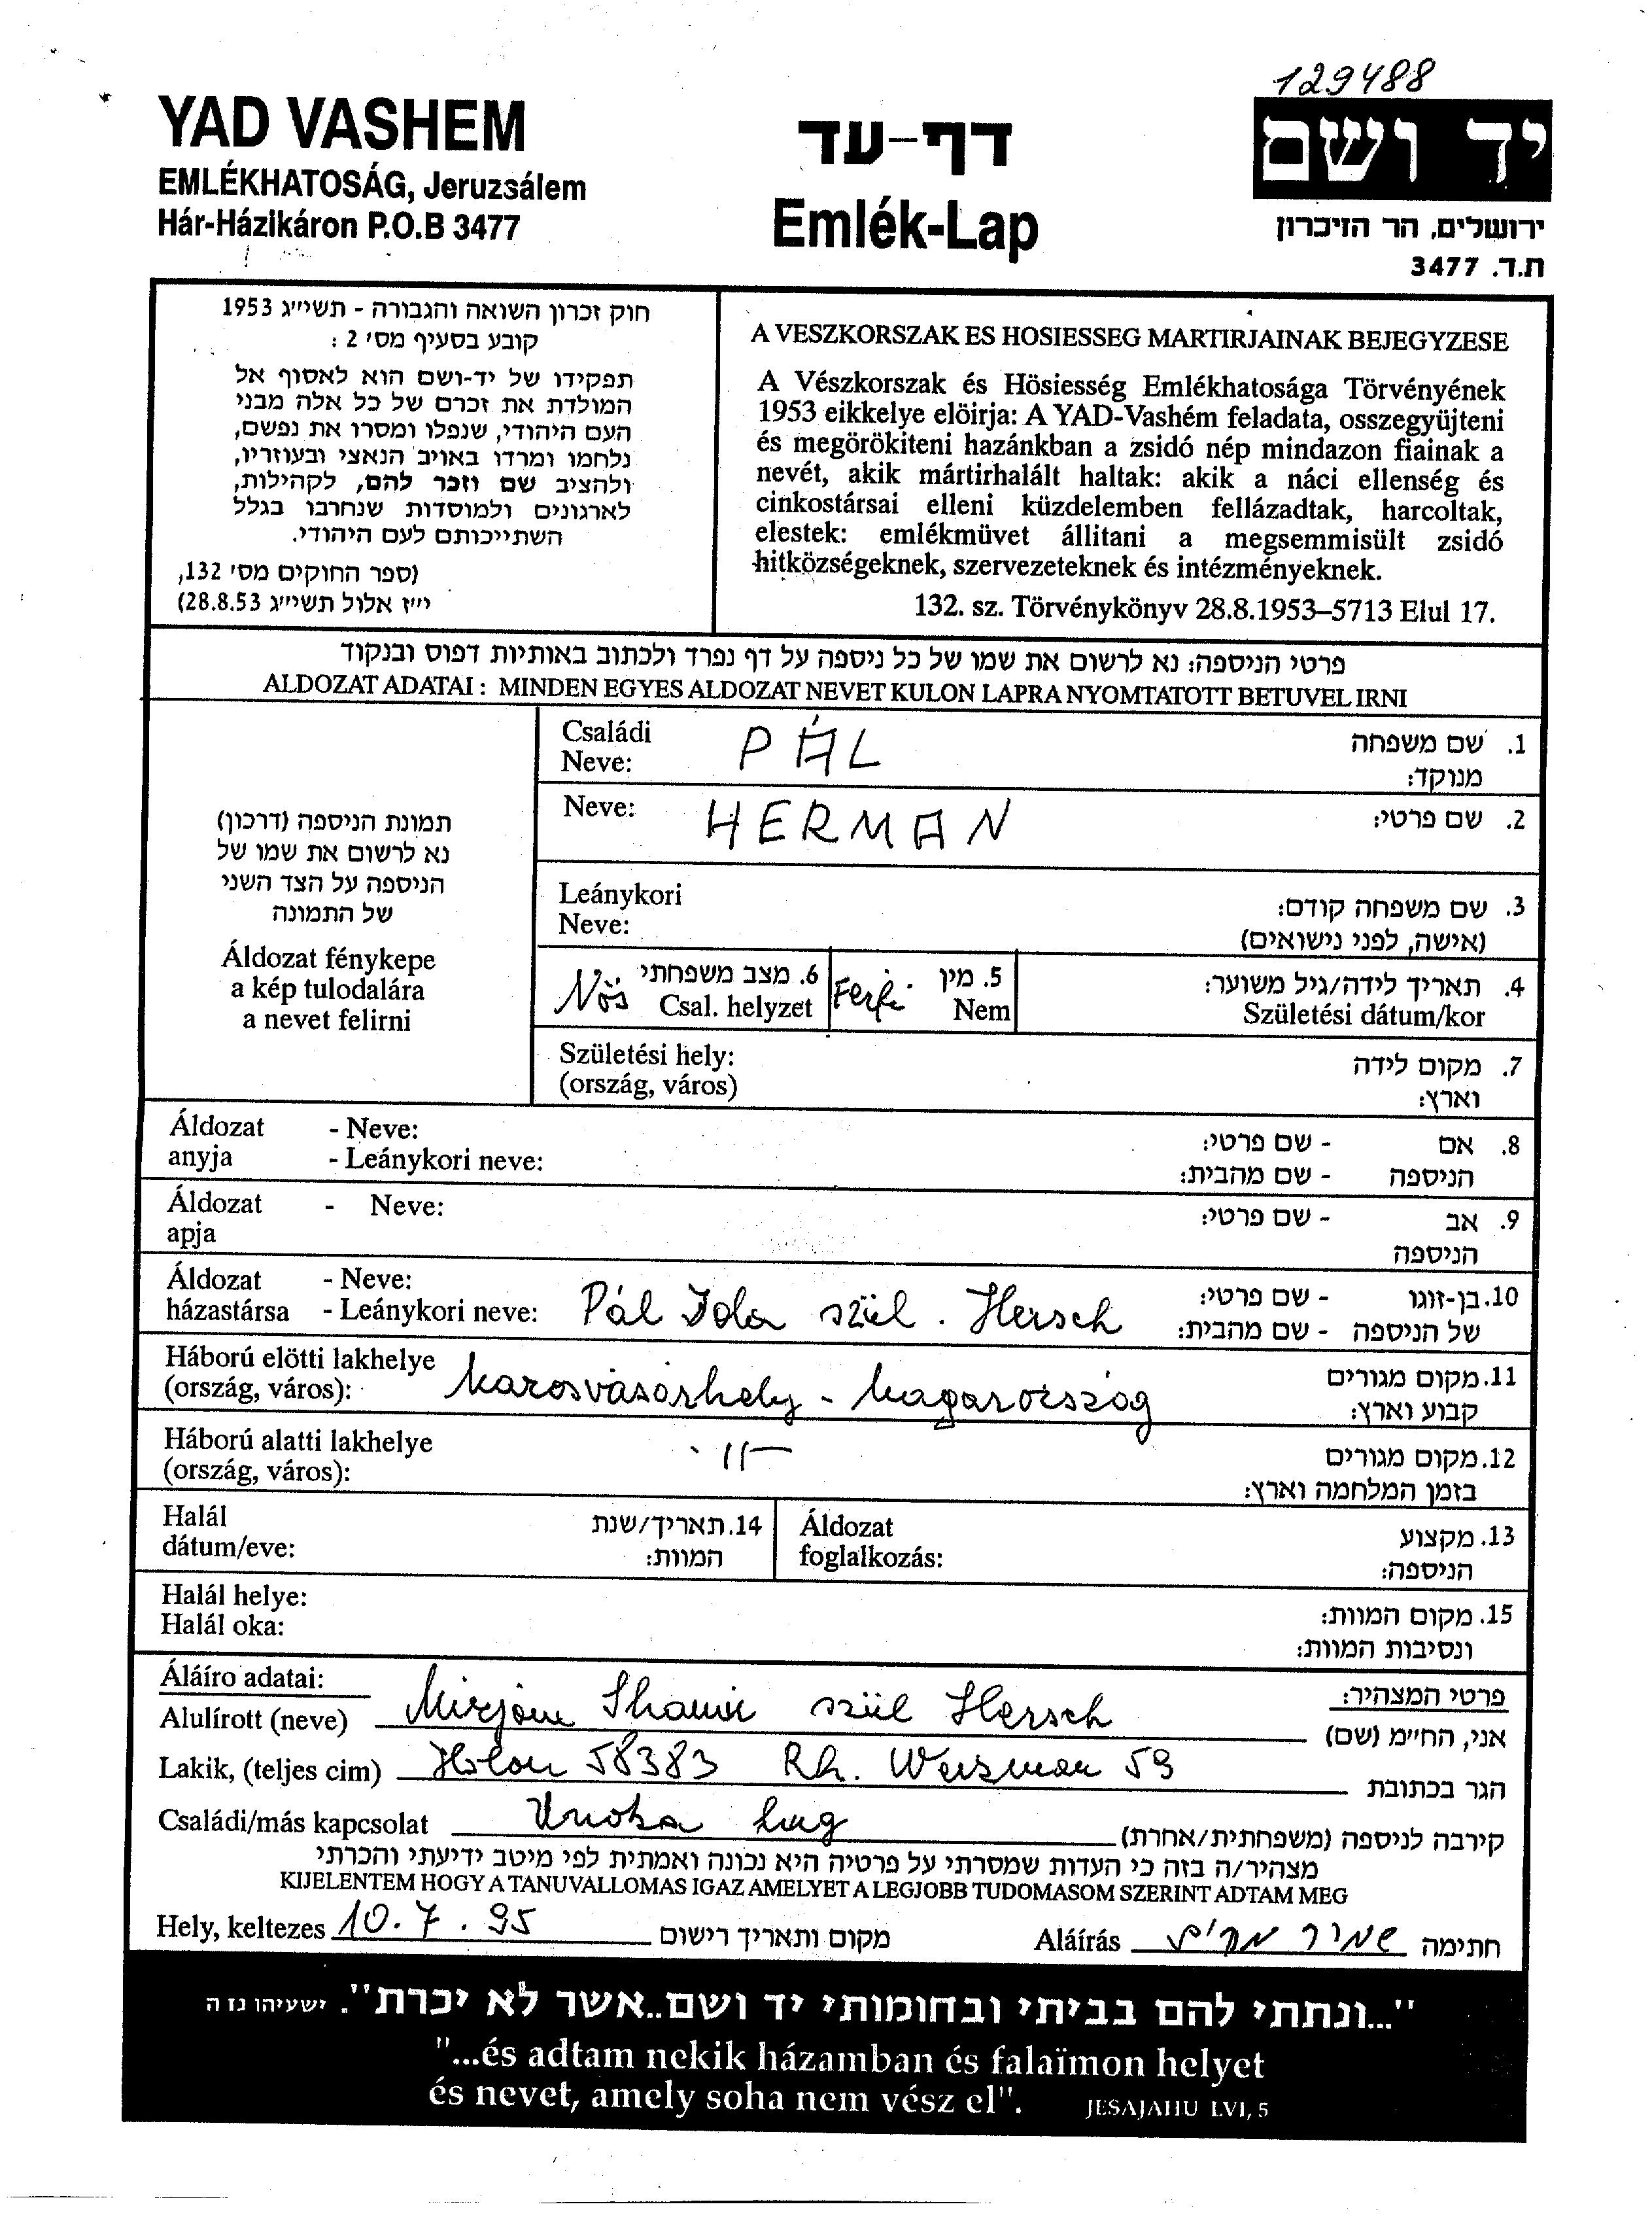 129488
YAD VASHEM
EMLÉKHATOSÁG, Jeruzsálem
Hár-Házikáron P.O.B 3477
דף-עד
Emlék-Lap
יד ושם
ירושלים, הר הזיכרון
ת.ד. 3477
חוק זכרון השואה והגבורה - תשי״ג 1953
קובע בסעיף מס׳ 2 :
תפקידו של יד-ושם הוא לאסוף אל
המולדת את זכרם של כל אלה מבני
העם היהודי, שנפלו ומסרו את נפשם,
נלחמו ומרדו באויב הנאצי ובעוזריו,
ולהציב שם וזכר להם, לקהילות,
לארגונים ולמוסדות שנחרבו בגלל
השתייכותם לעם היהודי.
(ספר החוקים מס׳ 132,
י״ז אלול תשי״ג 28.8.53)
A VESZKORSZAK ES HOSIESSEG MARTIRJAINAK BEJEGYZESE
A Vészkorszak és Hösiesség Emlékhatosága Törvényének
1953 eikkelye elöirja: A YAD-Vashém feladata, osszegyüjteni
és megörökiteni hazánkban a zsidó nép mindazon fiainak a
nevét, akik mártirhalált haltak: akik a náci ellenség és
cinkostársai elleni küzdelemben fellázadtak, harcoltak,
elestek: emlékmüvet állitani a megsemmisült zsidó
hitközségeknek, szervezeteknek és intézményeknek.
132. sz. Törvénykönyv 28.8.1953–5713 Elul 17.
פרטי הניספה: נא לרשום את שמו של כל ניספה על דף נפרד ולכתוב באותיות דפוס ובנקוד
ALDOZAT ADATAI : MINDEN EGYES ALDOZAT NEVET KULON LAPRA NYOMTATOTT BETUVEL IRNI
תמונת הניספה (דרכון)
נא לרשום את שמו של
הניספה על הצד השני
של התמונה
Áldozat fénykepe
a kép tulodalára
a nevet felirni
Családi
Neve:
PÁL
1. שם משפחה
מנוקד:
Neve:
HERMAN
2. שם פרטי:
Leánykori
Neve:
3. שם משפחה קודם:
(אישה, לפני נישואים)
Nös
6. מצב משפחתי
Csal. helyzet
Ferfi
5. מין
Nem
4. תאריך לידה/גיל משוער:
Születési dátum/kor
Születési hely:
(ország, város)
7. מקום לידה
וארץ:
Áldozat - Neve:
anyja - Leánykori neve:
8. אם - שם פרטי:
הניספה - שם מהבית:
Áldozat - Neve:
apja
9. אב - שם פרטי:
הניספה
Áldozat - Neve:
házastársa - Leánykori neve:
Pál Iola szül. Hersch
10. בן-זוגו - שם פרטי:
של הניספה - שם מהבית:
Háború elötti lakhelye
(ország, város):
Marosvásárhely - Magarország
11. מקום מגורים
קבוע וארץ:
Háború alatti lakhelye
(ország, város):
-11-
12. מקום מגורים
בזמן המלחמה וארץ:
Halál
dátum/eve:
14. תאריך/שנת
המוות:
Áldozat
foglalkozás:
13. מקצוע
הניספה:
Halál helye:
Halál oka:
15. מקום המוות:
ונסיבות המוות:
Áláíro adatai:
פרטי המצהיר:
Alulírott (neve) Mirjam Shamir szül Hersch אני, הח״מ (שם)
Lakik, (teljes cim) Holon 58383 Rh. Weisman 59 הגר בכתובת
Családi/más kapcsolat Unoka hug קירבה לניספה (משפחתית/אחרת)
מצהיר/ה בזה כי העדות שמסרתי על פרטיה היא נכונה ואמתית לפי מיטב ידיעתי והכרתי
KIJELENTEM HOGY A TANUVALLOMAS IGAZ AMELYET A LEGJOBB TUDOMASOM SZERINT ADTAM MEG
Hely, keltezes 10.7.95 מקום ותאריך רישום Aláírás שמיר מרים חתימה
"...ונתתי להם בביתי ובחומותי יד ושם..אשר לא יכרת". ישעיהו נז ה
"...és adtam nekik házamban és falaïmon helyet
és nevet, amely soha nem vész el". JESAJAHU LVI, 5